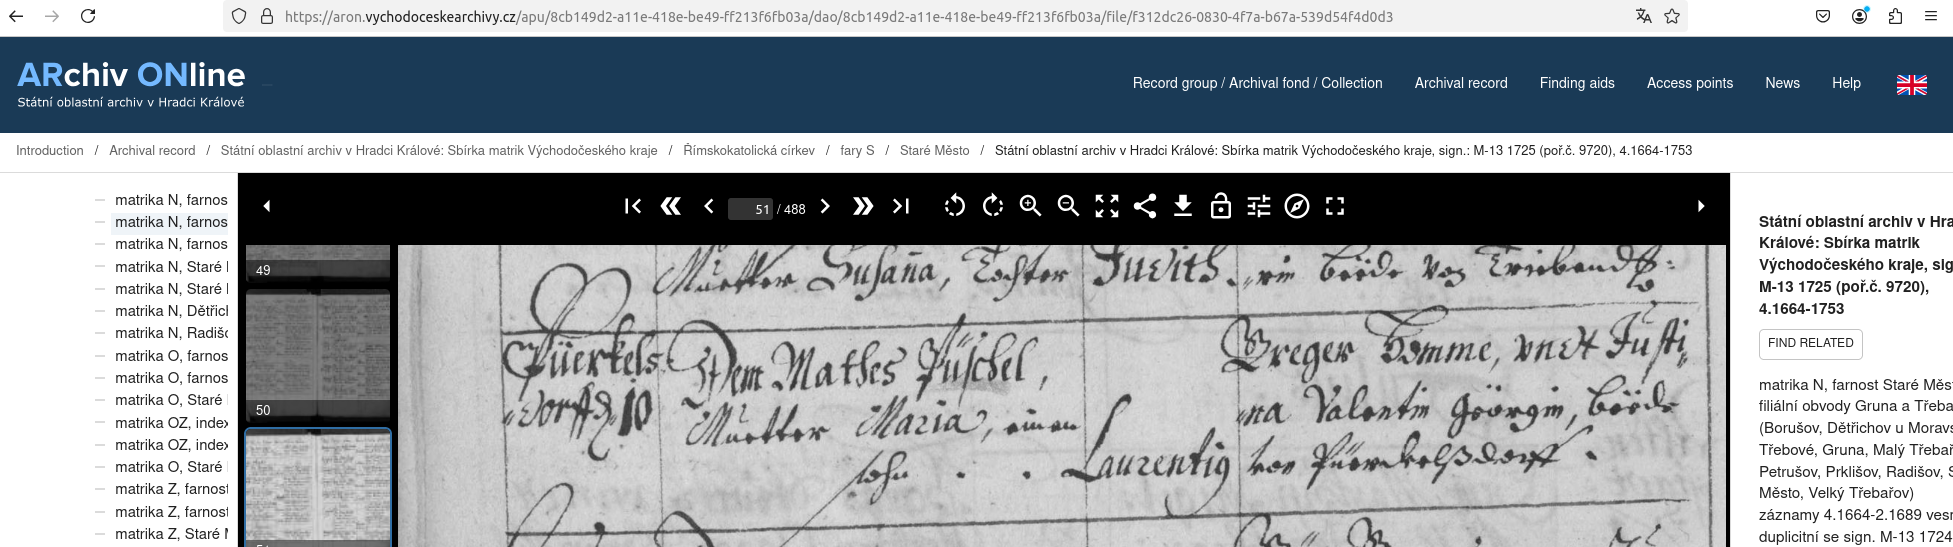 https://aron.vychodoceskearchivy.cz/apu/8cb149d2-a11e-418e-be49-ff213f6fb03a/dao/8cb149d2-a11e-418e-be49-ff213f6fb03a/file/f312dc26-0830-4f7a-b67a-539d54f4d0d3
ARchiv ONline
Státní oblastní archiv v Hradci Králové
Record group / Archival fond / Collection Archival record Finding aids Access points News Help
Introduction / Archival record / Státní oblastní archiv v Hradci Králové: Sbírka matrik Východočeského kraje / Římskokatolická církev / fary S / Staré Město / Státní oblastní archiv v Hradci Králové: Sbírka matrik Východočeského kraje, sign.: M-13 1725 (poř.č. 9720), 4.1664-1753
matrika N, farnos
matrika N, farnos
matrika N, farnos
matrika N, Staré
matrika N, Staré
matrika N, Dětřich
matrika N, Radišo
matrika O, farnos
matrika O, farnos
matrika O, Staré
matrika OZ, index
matrika OZ, index
matrika O, Staré
matrika Z, farnost
matrika Z, farnost
matrika Z, Staré M
51 / 488
49
50
Muetter Susaña, Tochter Judith
beede von
Püerkels Dem Mathes Püschel, Greger Homme, vndt Justi
dorff d 10 Muetter Maria, einen na Valentin Görgin, beede
sohn . . Laurentig von Püerckelßdorff .
Státní oblastní archiv v Hra
Králové: Sbírka matrik
Východočeského kraje, sig
M-13 1725 (poř.č. 9720),
4.1664-1753
FIND RELATED
matrika N, farnost Staré Měst
filiální obvody Gruna a Třeba
(Borušov, Dětřichov u Moravs
Třebové, Gruna, Malý Třebař
Petrušov, Prklišov, Radišov, S
Město, Velký Třebařov)
záznamy 4.1664-2.1689 vesn
duplicitní se sign. M-13 1724